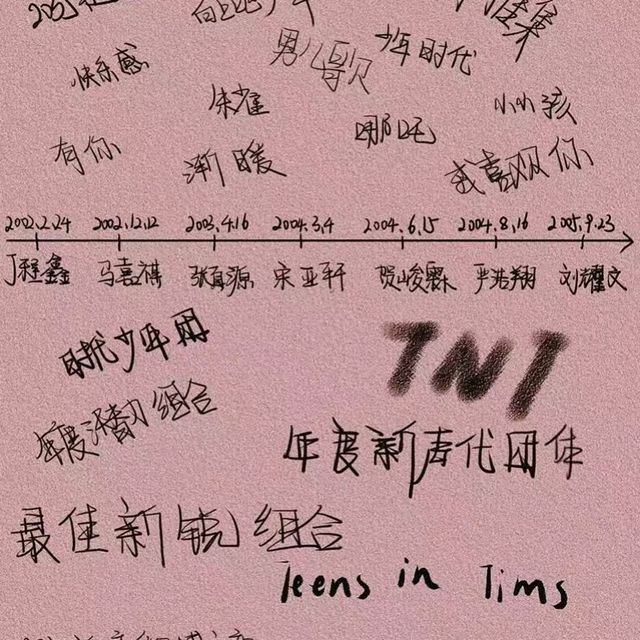 男儿歌
少年时代
快乐感
朱雀
小小孩
哪吒
有你
渐暖
我喜欢你
2002.2.24 2002.12.12 2003.4.16 2004.3.4 2004.6.15 2004.8.16 2005.9.23
丁程鑫 马嘉祺 张真源 宋亚轩 贺峻霖 严浩翔 刘耀文
时代少年团
TNT
年度潜力组合
年度新声代团体
最佳新锐组合
Teens in Tims